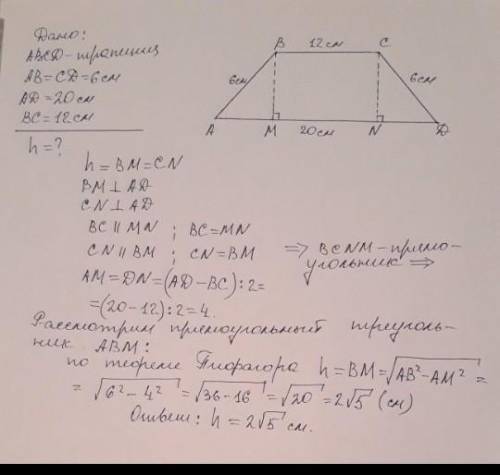 Дано:
ABCD-трапеция
AB=CD=6см
AD=20см
BC=12см
h=?
B 12см C
6см 6см
A M 20см N D
h=BM=CN
BM⊥AD
CN⊥AD
BC∥MN ; BC=MN
CN∥BM ; CN=BM ⇒ BCNM-прямо-
угольник ⇒
AM=DN=(AD-BC):2=
=(20-12):2=4.
Рассмотрим прямоугольный треуголь-
ник ABM:
по теореме Пифагора h=BM=√AB²-AM² =
=√6²-4² =√36-16 =√20 =2√5 (см)
Ответ: h=2√5 см.